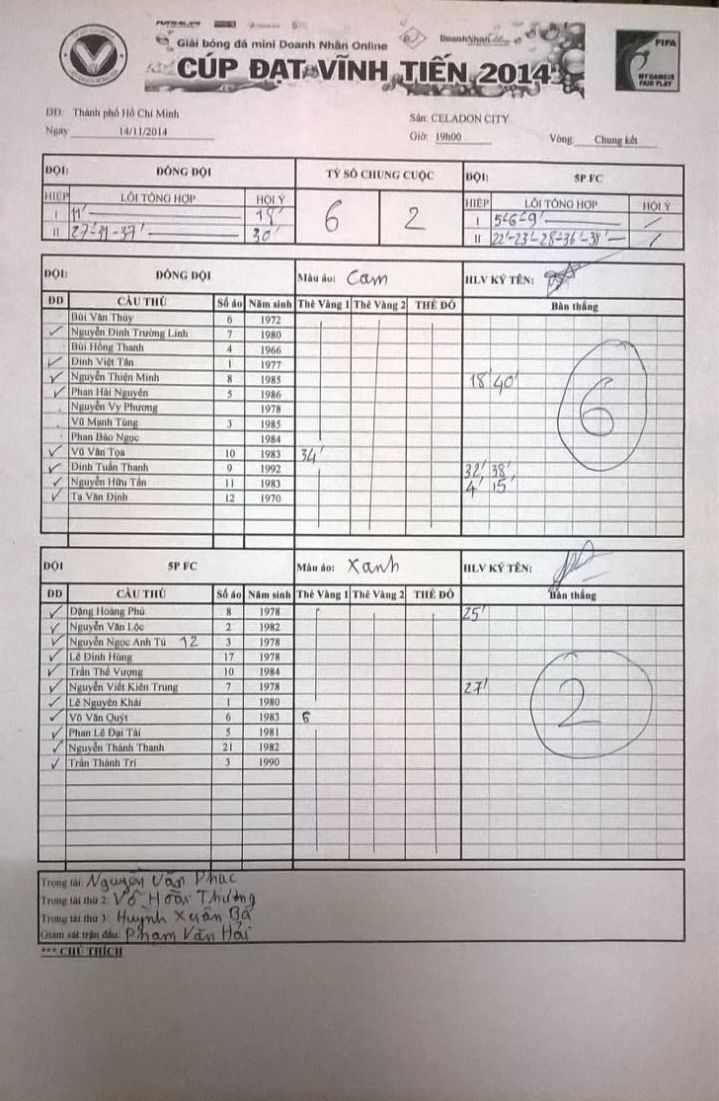 Giải bóng đá mini Doanh Nhân Online
CÚP ĐẠT VĨNH TIẾN 2014
FIFA
MY GAME IS
FAIR PLAY
DD: Thành phố Hồ Chí Minh
Sân: CELADON CITY
Ngày 14/11/2014
Giờ: 19h00
Vòng: Chung kết
ĐỘI: ĐỒNG ĐỘI TỶ SỐ CHUNG CUỘC ĐỘI: 5P FC
HIỆP LỖI TỔNG HỢP HỘI Ý 6 2 HIỆP LỖI TỔNG HỢP HỘI Ý
I 11' 18' I 5'-6'-9' /
II 27'-31-37' 30' II 22'-23'-28'-36'-38' /
ĐỘI: ĐỒNG ĐỘI Màu áo: Cam HLV KÝ TÊN:
DD CẦU THỦ Số áo Năm sinh Thẻ Vàng 1 Thẻ Vàng 2 THẺ ĐỎ Bàn thắng
Bùi Văn Thủy 6 1972
✓ Nguyễn Đình Trường Linh 7 1980
Bùi Hồng Thanh 4 1966
✓ Đinh Việt Tân 1 1977
✓ Nguyễn Thiện Minh 8 1985 18' 40'
✓ Phan Hải Nguyên 5 1986
Nguyễn Vy Phương 1978
Vũ Mạnh Tùng 3 1985
Phan Bảo Ngọc 1984
✓ Vũ Văn Tọa 10 1983 34'
✓ Đinh Tuấn Thanh 9 1992 32' 38'
✓ Nguyễn Hữu Tấn 11 1983 4' 15'
✓ Tạ Văn Định 12 1970
6
ĐỘI 5P FC Màu áo: Xanh HLV KÝ TÊN:
DD CẦU THỦ Số áo Năm sinh Thẻ Vàng 1 Thẻ Vàng 2 THẺ ĐỎ Bàn thắng
✓ Đặng Hoàng Phú 8 1978 25'
✓ Nguyễn Văn Lộc 2 1982
✓ Nguyễn Ngọc Anh Tú 12 3 1978
✓ Lê Đình Hùng 17 1978
✓ Trần Thế Vượng 10 1984
✓ Nguyễn Viết Kiên Trung 7 1978 27'
✓ Lê Nguyên Khải 1 1980
✓ Võ Văn Quýt 6 1983 6
✓ Phan Lê Đại Tài 5 1981
✓ Nguyễn Thành Thanh 21 1982
✓ Trần Thành Trí 3 1990
2
Trọng tài: Nguyễn Văn Phúc
Trọng tài thứ 2: Võ Hoài Thương
Trọng tài thứ 3: Huỳnh Xuân Bá
Giám sát trận đấu: Phạm Văn Hải
*** CHÚ THÍCH